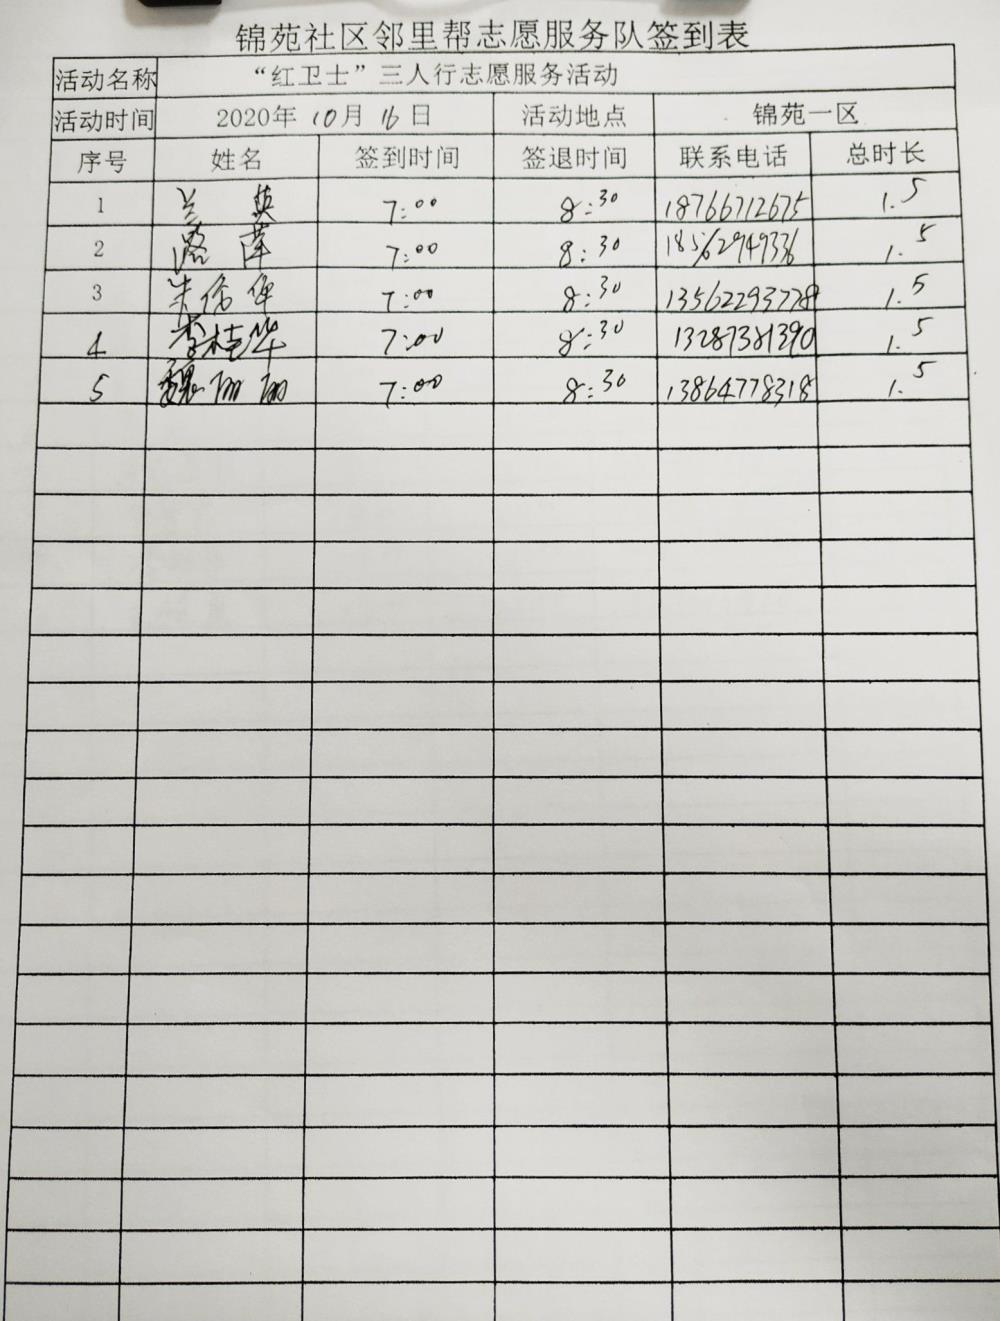 锦苑社区邻里帮志愿服务队签到表
活动名称 “红卫士”三人行志愿服务活动
活动时间 2020年 10月 16日 活动地点 锦苑一区
序号 姓名 签到时间 签退时间 联系电话 总时长
1 兰英 7:00 8:30 18766712675 1.5
2 潘萍 7:00 8:30 18562949336 1.5
3 7:00 8:30 13562293778 1.5
4 李桂华 7:00 8:30 13287381390 1.5
5 魏丽丽 7:00 8:30 13864778318 1.5